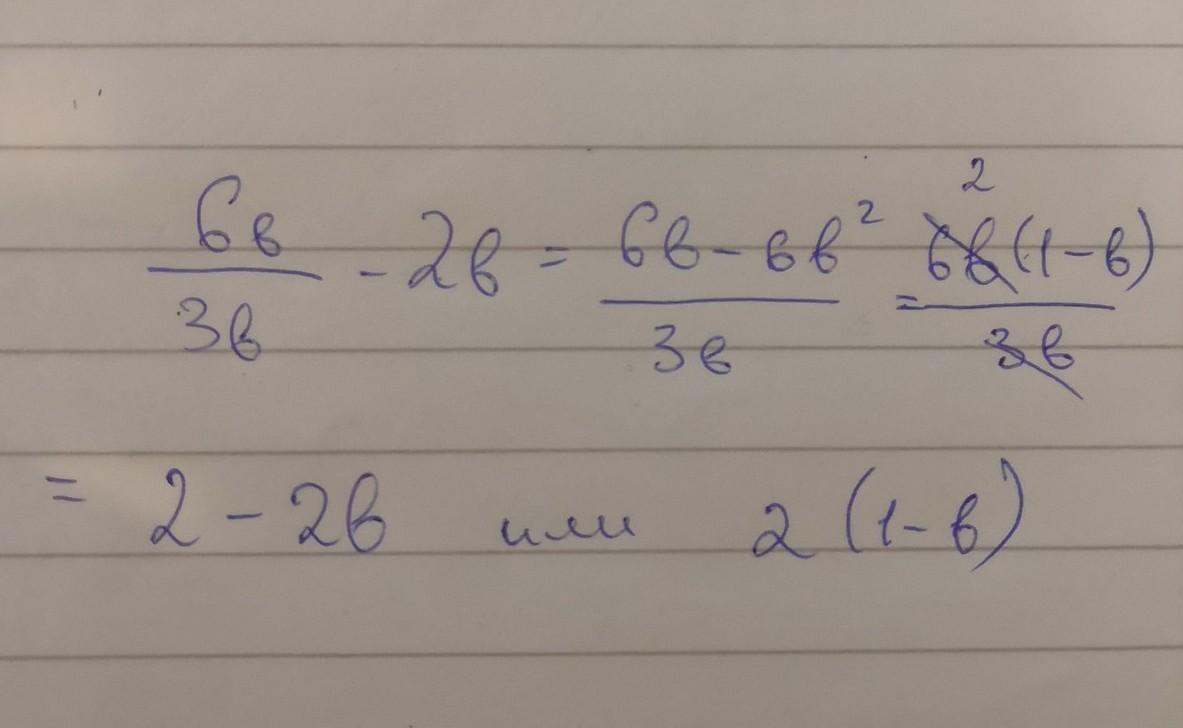 6в/3в - 2в = 6в - 6в²/3в = 6в(1 - в)/3в 2
= 2 - 2в или 2(1 - в)